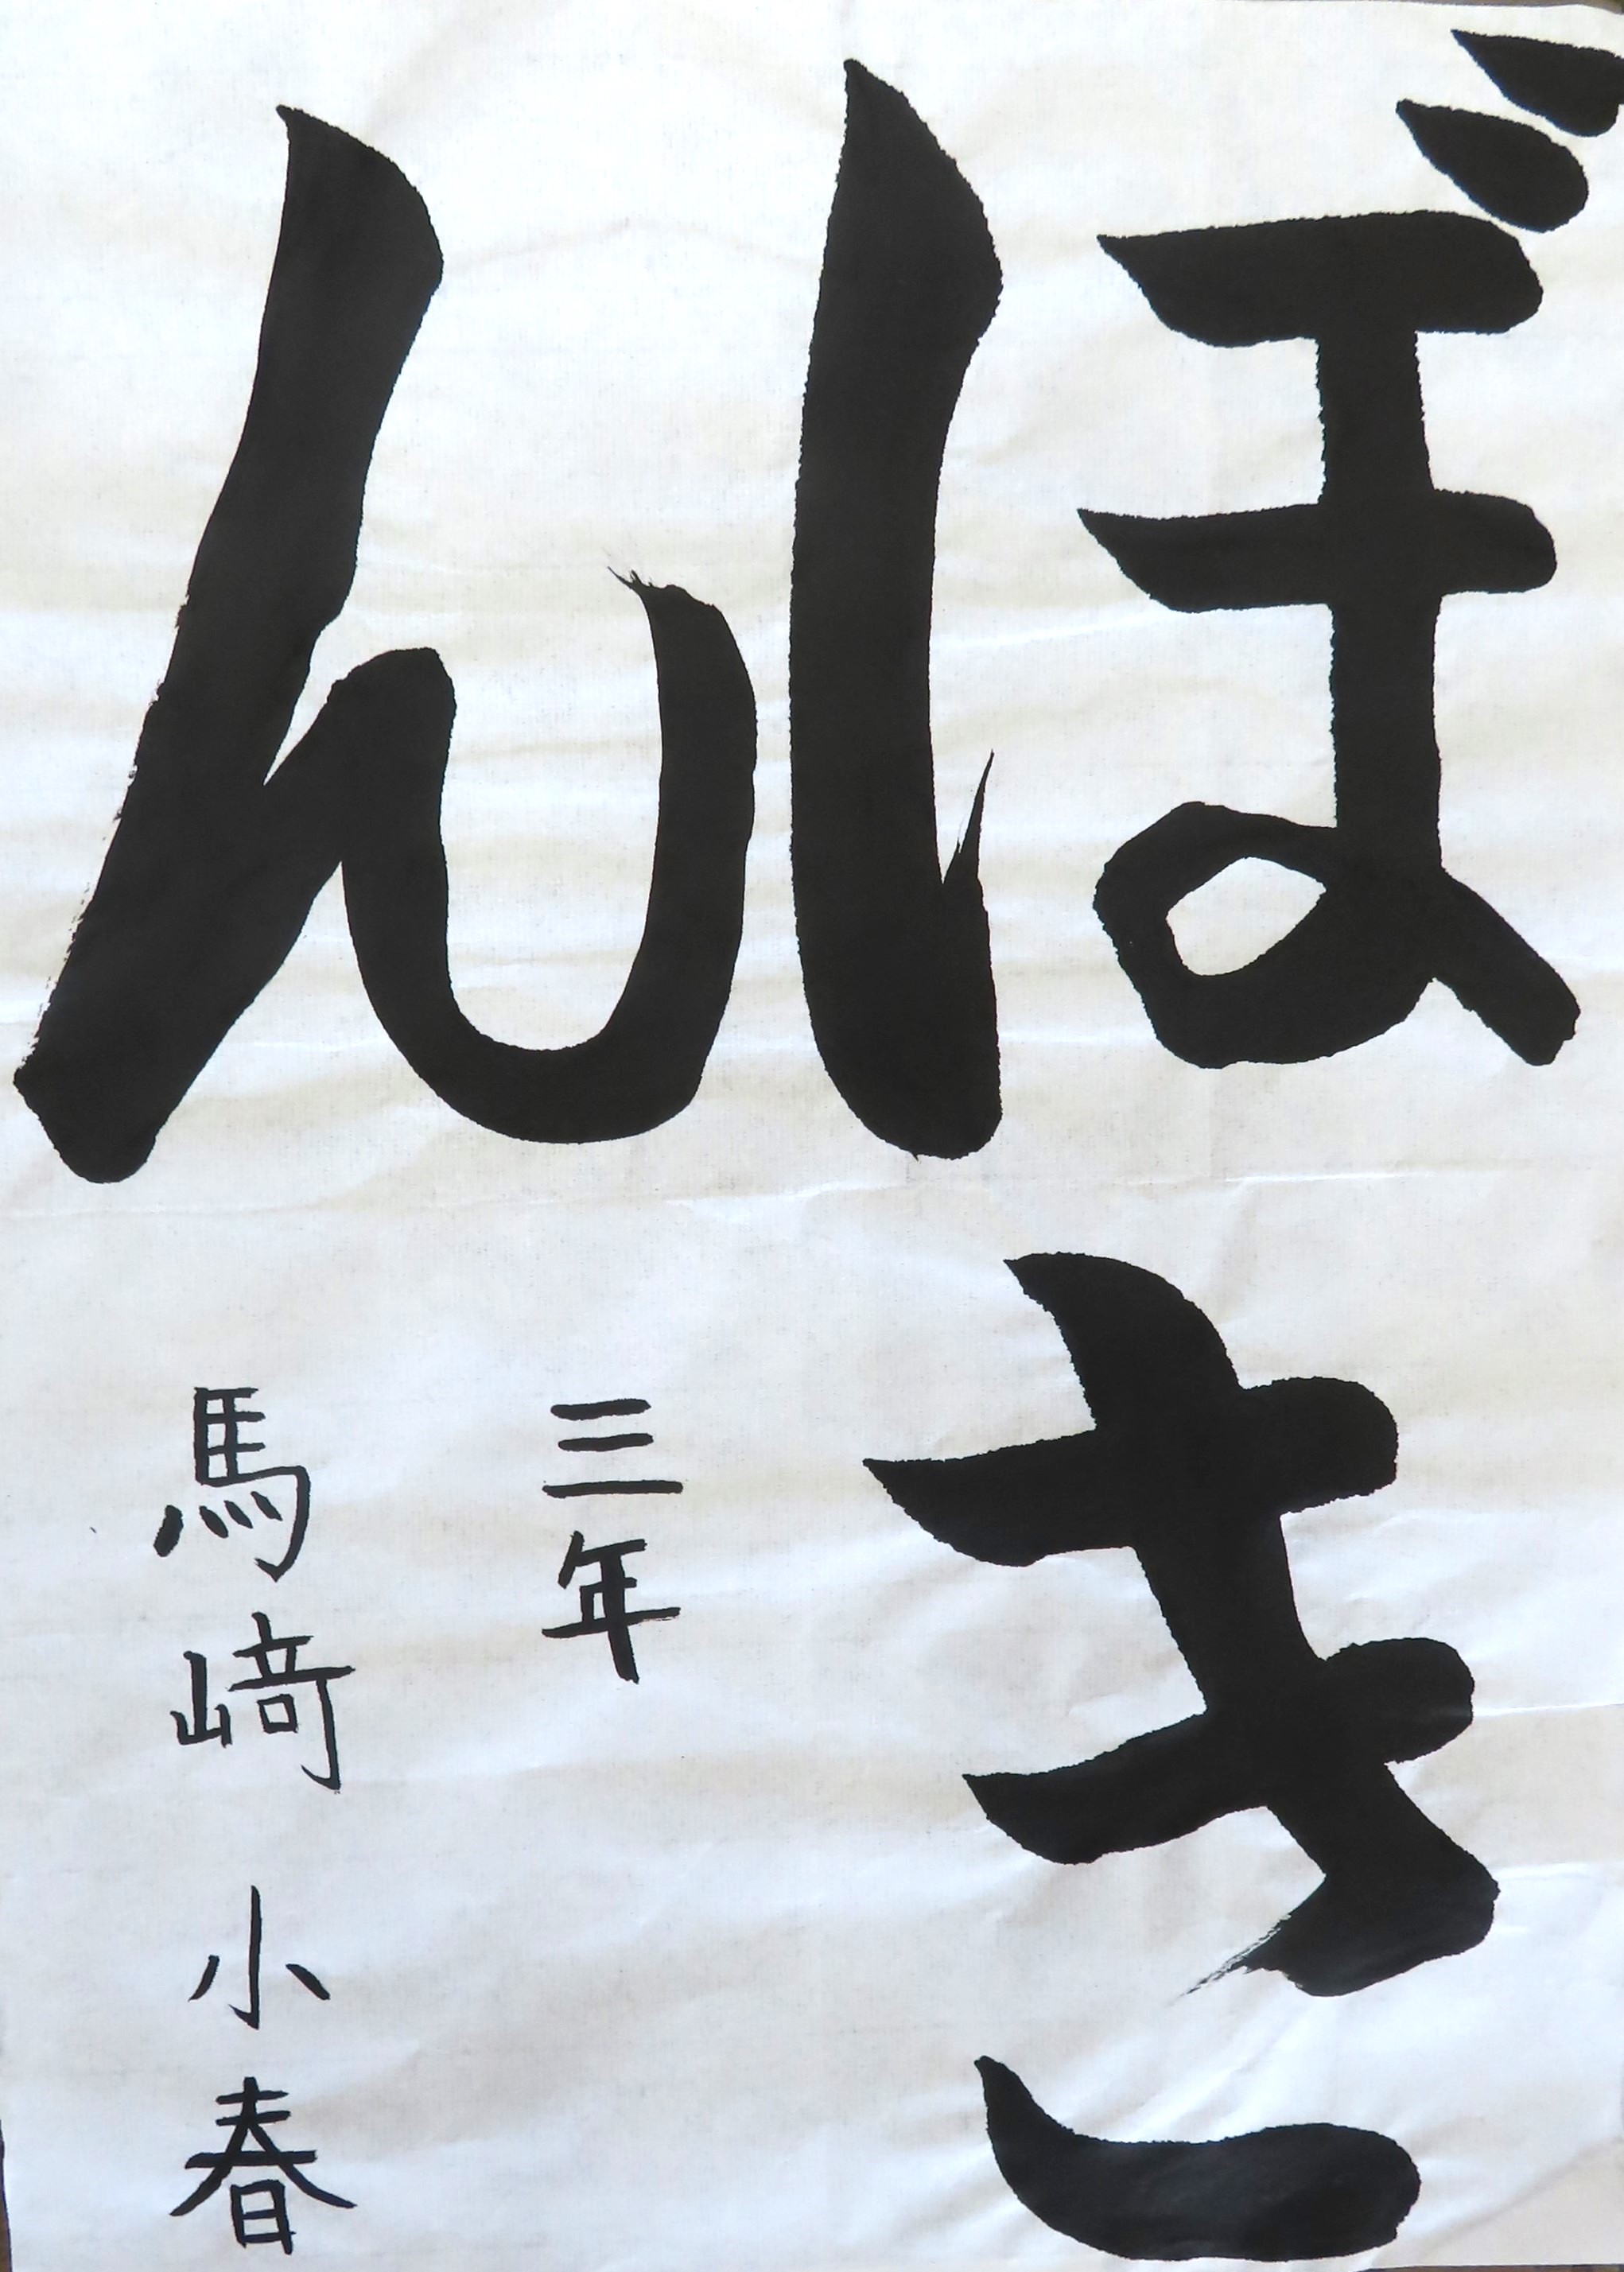 ぼき
ん
三年
馬﨑 小春